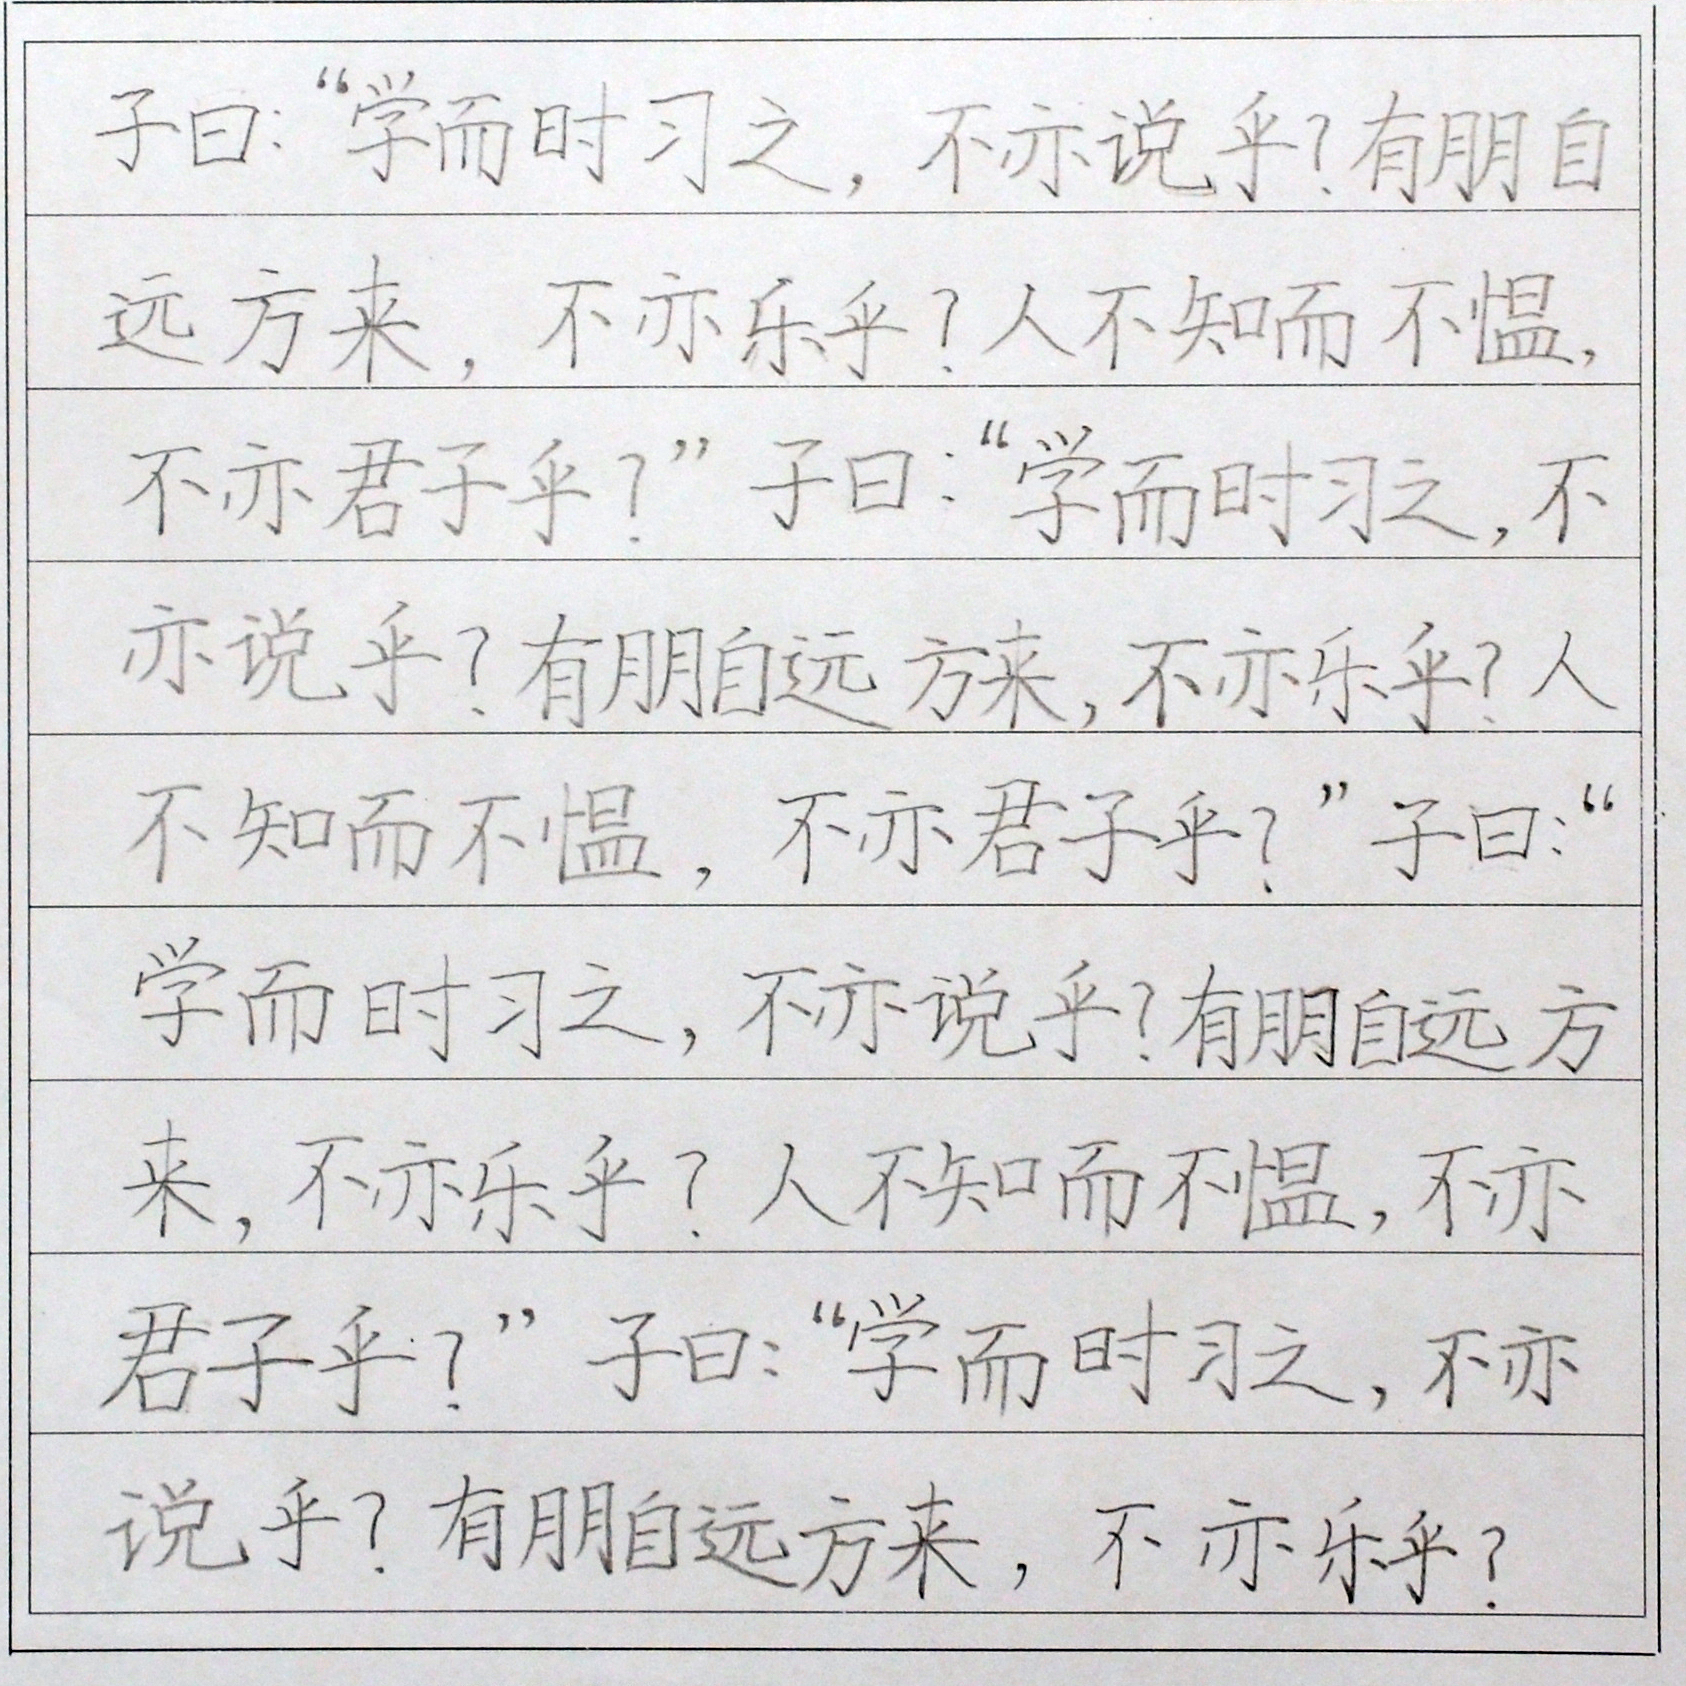 子曰：“学而时习之，不亦说乎？有朋自
远方来，不亦乐乎？人不知而不愠，
不亦君子乎？”子曰：“学而时习之，不
亦说乎？有朋自远方来，不亦乐乎？人
不知而不愠，不亦君子乎？”子曰：“
学而时习之，不亦说乎？有朋自远方
来，不亦乐乎？人不知而不愠，不亦
君子乎？”子曰：“学而时习之，不亦
说乎？有朋自远方来，不亦乐乎？